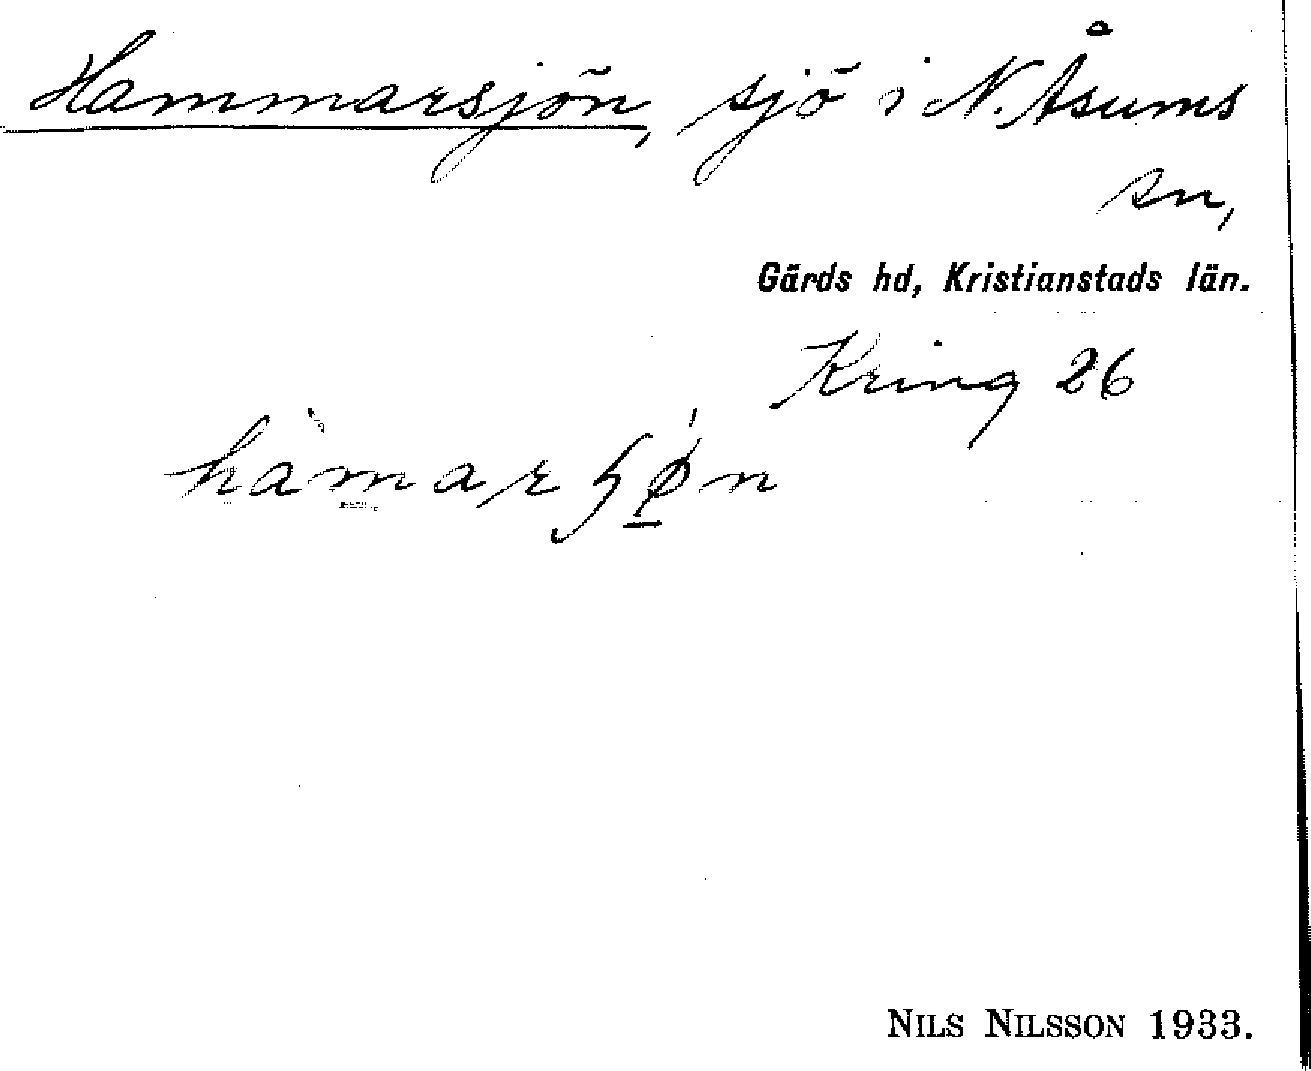 Hammarsjön, sjö i N. Åsums
sn,
Gärds hd, Kristianstads län.
Kring 26
NILS NILSSON 1933.